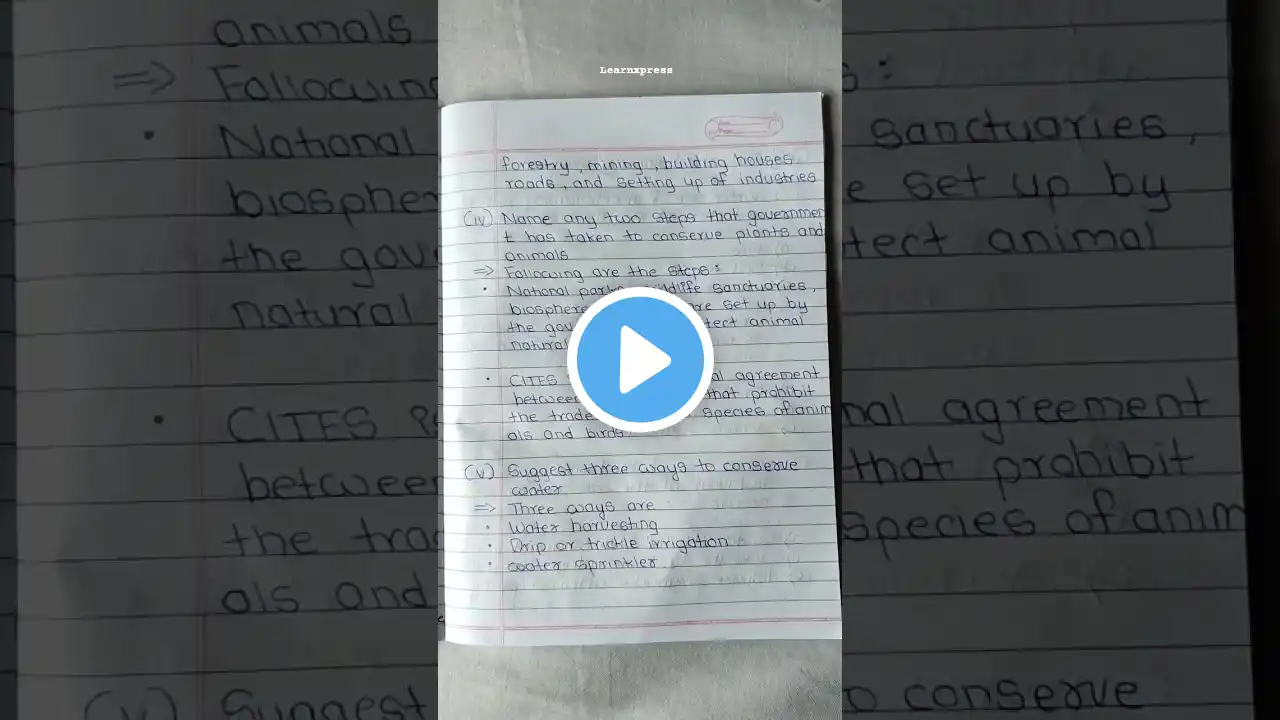 Learnxpress
forestry, mining, building houses
roads, and setting up of industries
(iv) Name any two steps that governmen
t has taken to conserve plants and
animals
⇒ Following are the steps:
• National parks, wildlife sanctuaries,
biosphere are set up by
the gov tect animal
natural
• CITES al agreement
between that prohibit
the trade species of anim
als and birds
(v) Suggest three ways to conserve
water
⇒ Three ways are
• Water harvesting
• Drip or trickle irrigation
• water sprinkler